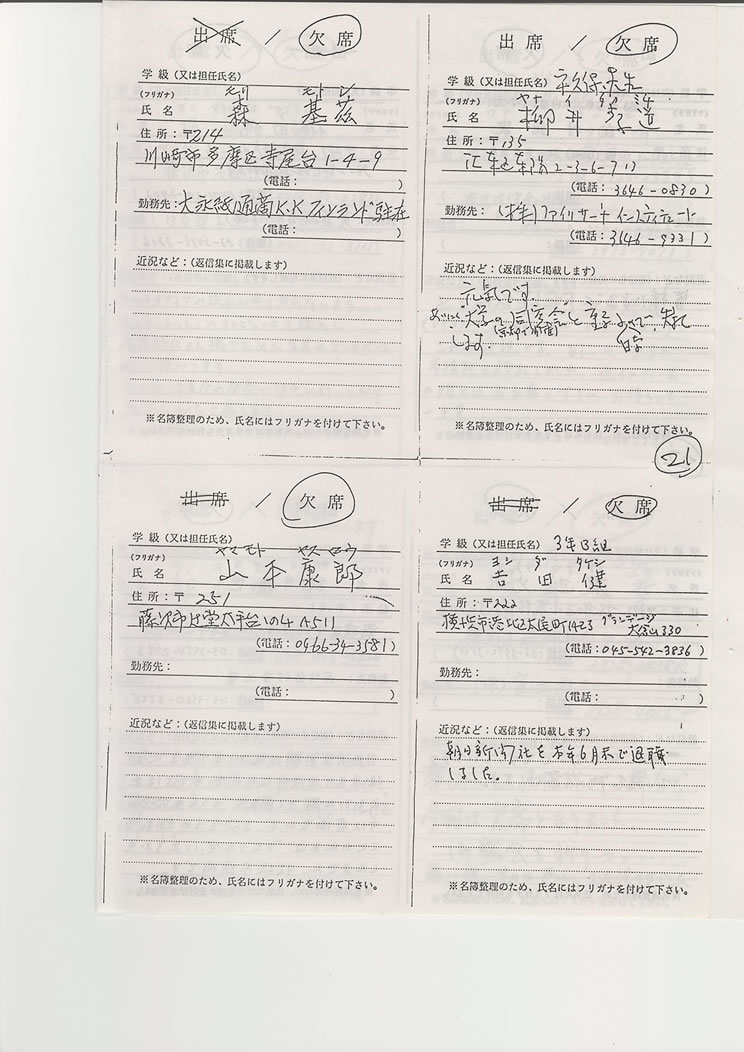 出席 / 欠席
学級（又は担任氏名）
（フリガナ） モリ モトシ
氏名 森 基茲
住所：〒214
川崎市多摩区寺尾台1-4-9
（電話： ）
勤務先：大永紙通商K.K.フィンランド駐在
（電話： ）
近況など：（返信集に掲載します）
※名簿整理のため、氏名にはフリガナを付けて下さい。
出席 / 欠席
学級（又は担任氏名） 先生
（フリガナ） ヤナイ
氏名 柳井 道
住所：〒135
江東区東陽2-3-6-711
（電話：3646-0830）
勤務先：（株）ファイリサーチインスティテュート
（電話：3646-9331）
近況など：（返信集に掲載します）
元気です.
"大学の同窓会"と重 ので,失礼
します.
※名簿整理のため、氏名にはフリガナを付けて下さい。
21
出席 / 欠席
学級（又は担任氏名）
（フリガナ） ヤマモト ヤスロウ
氏名 山本 康郎
住所：〒251
藤沢市辻堂太平台1の4 A511
（電話：0466-34-3581）
勤務先：
（電話： ）
近況など：（返信集に掲載します）
※名簿整理のため、氏名にはフリガナを付けて下さい。
出席 / 欠席
学級（又は担任氏名） 3年B組
（フリガナ） ヨシダ タケシ
氏名 吉田 健
住所：〒222
横浜市港北区太尾町1423 グランデージ大倉山330
（電話：045-542-3836）
勤務先：
（電話： ）
近況など：（返信集に掲載します）
朝日新聞社を 年6月末で退職
しました。
※名簿整理のため、氏名にはフリガナを付けて下さい。